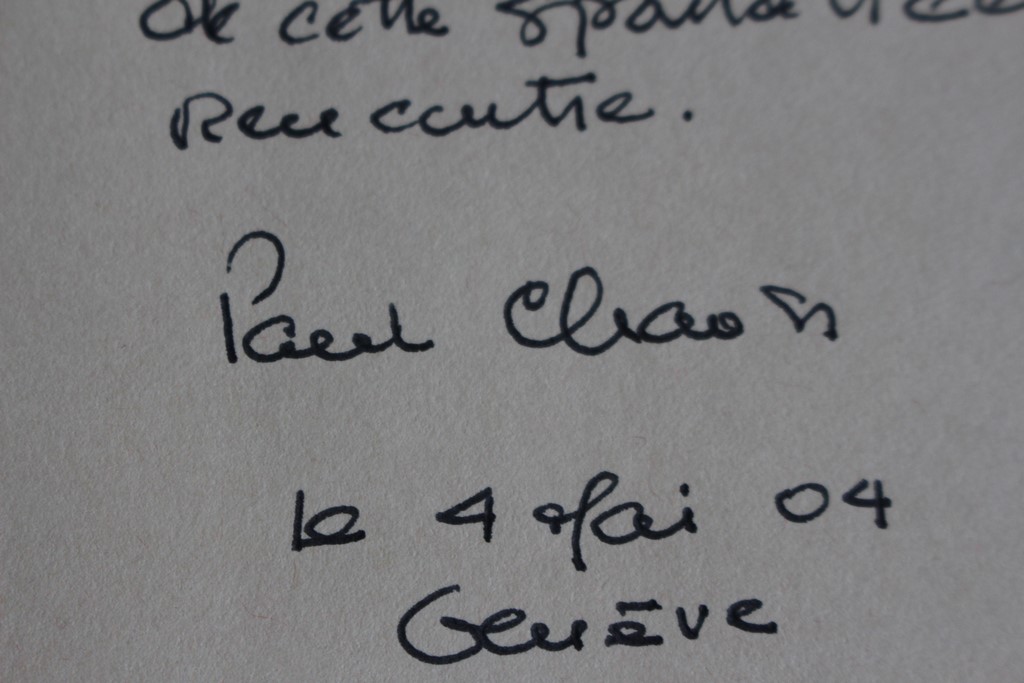 de cette spontanée
rencontre.
Paul Chaoïs
le 4 Mai 04
Genève